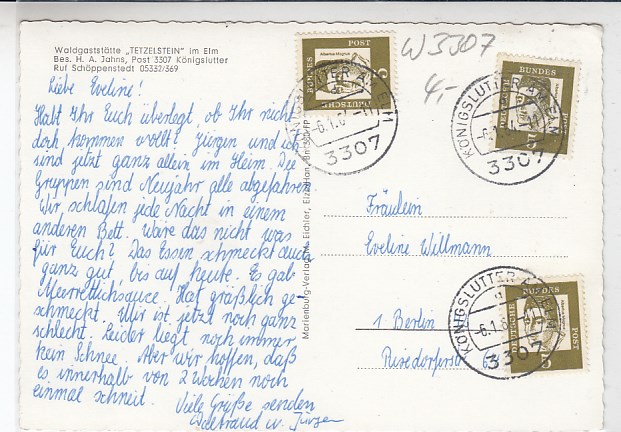 Waldgaststätte „TETZELSTEIN" im Elm
Bes. H. A. Jahns, Post 3307 Königslutter
Ruf Schöppenstedt 05332/369
Liebe Eveline!
Habt Ihr Euch überlegt, ob Ihr nicht
doch kommen wollt? Jürgen und ich
sind jetzt ganz allein im Heim. Die
Gruppen sind Neujahr alle abgefahren
Wir schlafen jede Nacht in einem
anderen Bett. Wäre das nicht was
für Euch? Das Essen schmeckt auch
ganz gut, bis auf heute. Es gab
Meerrettichsauce. Hat gräßlich ge-
schmeckt. Mir ist jetzt noch ganz
schlecht. Leider liegt noch immer
kein Schnee. Aber wir hoffen, daß
es innerhalb von 2 Wochen noch
einmal schneit.
Viele Grüße senden
Waltraud u. Jürgen
Marienburg-Verlag M. Eichler,
W3307
4,-
DEUTSCHE
BUNDES
POST
KÖNIGSLUTTER
-6.1.6
3307
DEUTSCHE
BUNDES
POST
15
KÖNIGSLUTTER AM ELM
3307
Fräulein
Eveline Willmann
1 Berlin
DEUTSCHE
BUNDES
POST
15
KÖNIGSLUTTER
-6.1.6
3307